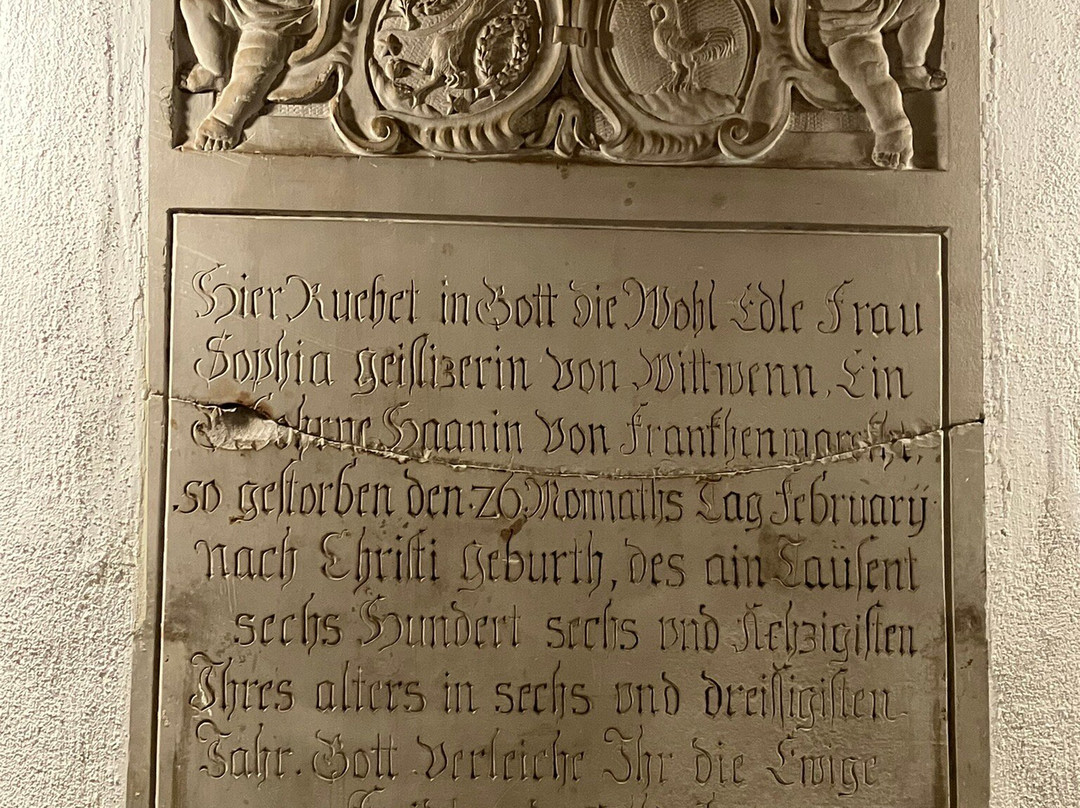 Hier Ruehet in Gott die Wohl Edle Frau
Sophia geislizerin von Wittwenn, Ein
Gebohrne Haanin von Frankhenmarckht,
so gestorben den 26 Monnaths Tag February
nach Christi geburth, des ain Taüsent
sechs Hundert sechs vnd Achzigisten
Ihres alters in sechs vnd dreissigisten
Jahr. Gott verleiche Ihr die Ewige